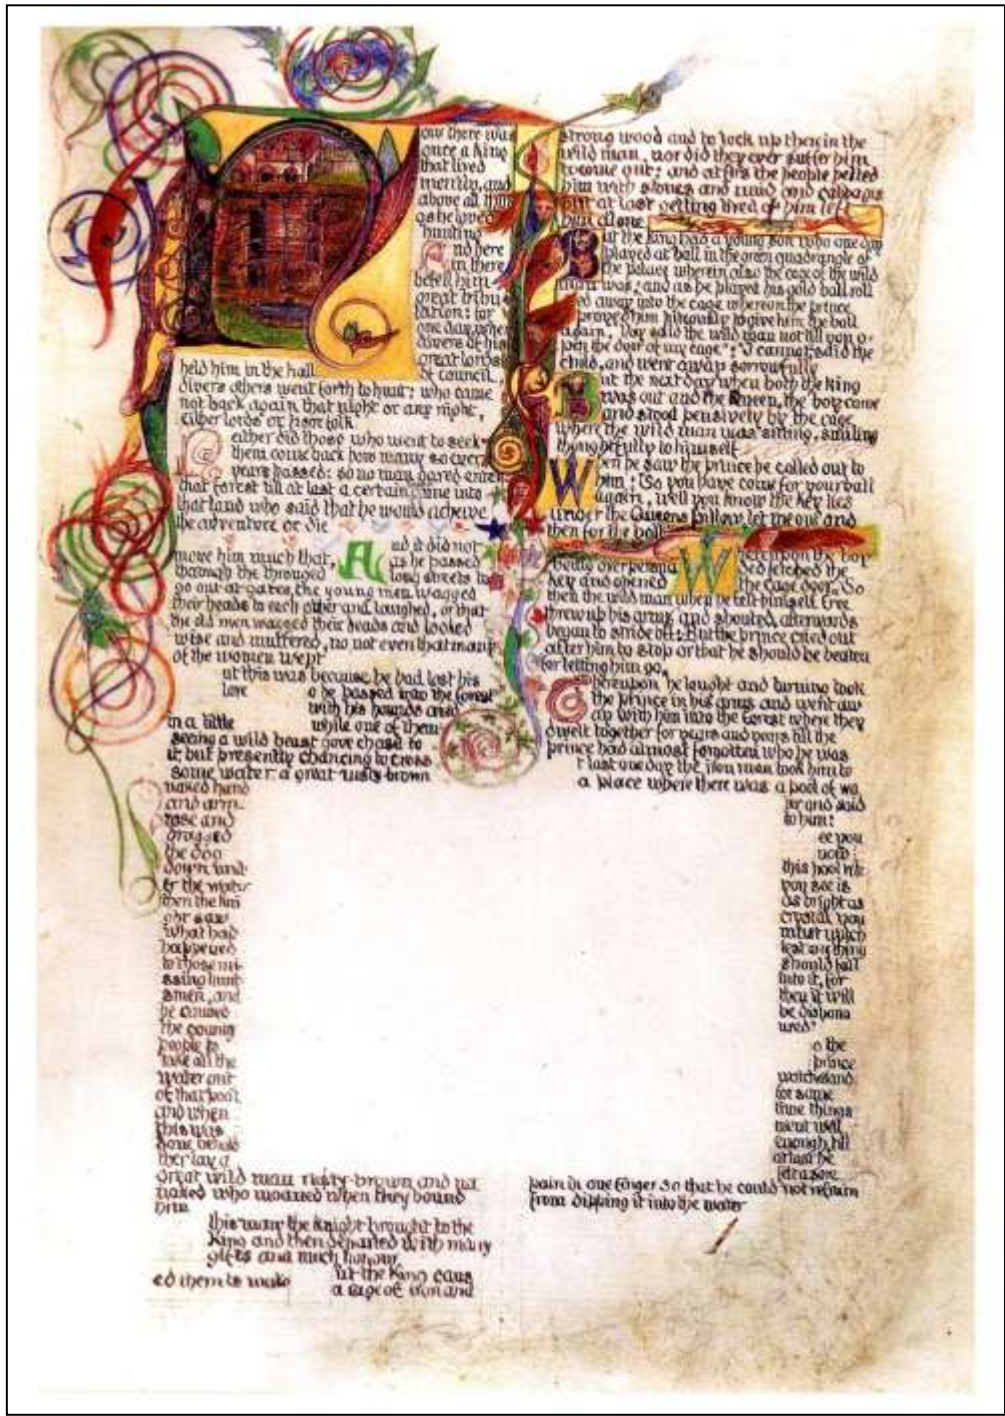 ow there was
once a King
that lived
merrily, and
above all thin
gs he loved
hunting
And here
in there
befell him
great tribu
lation: for
one day when
divers of his
great lords
held him in the hall of council,
divers others went forth to hunt: who came
not back again that night or any night,
either lords or poor folk
either did those who went to seek
them come back how many soever
years passed: so no man dared enter
that forest till at last a certain came into
that land who said that he would achieve
the adventure or die
And it did not
move him much that, as he passed
through the thronged long streets to
go out at gates, the young men wagged
their heads to each other and laughed, or that
the old men wagged their heads and looked
wise and muttered, no not even that many
of the women wept
ut this was because he had lost his
love o he passed into the forest
with his hounds and
in a little while one of them
seeing a wild beast gave chase to
it but presently chancing to cross
some water a great rusty-brown
naked hand
and arm
rose and
dragged
the dog
down und
er the water
then the kni
ght saw
what had
happened
to those mi
ssing hunt
smen, and
he caused
the country
people to
take all the
water out
of that pool
and when
this was
done behold
ther lay a
great wild man rusty-brown and na
naked who moaned when they bound
him
this man the knight brought to the
King and then departed with many
gifts and much honour
ut the King caus
ed them to make a cage of iron and
strong wood and to lock up therein the
wild man, nor did they ever suffer him
to come out; and at first the people pelted
him with stones and mud and cabbages
but at last getting tired of him left
him alone
But the king had a young son who one day
played at ball in the green quadrangle of
the palace wherein also the cage of the wild
man was; and as he played his gold ball roll
ed away into the cage whereon the prince
prayed him piteously to give him the ball
again. Nay said the wild man not till you o-
pen the door of my cage": "I cannot" said the
child, and went away sorrowfully
But the next day when both the king
was out and the Queen, the boy came
and stood pensively by the cage
where the wild man was sitting, smiling
thoughtfully to himself
When he saw the prince he called out to
him; So you have come for your ball
again, well you know the key lies
under the Queens pillow let me out and
then for the ball
Whereupon the boy
being over persua ded fetched the
key and opened the cage door. So
then the wild man when he felt himself free
threw up his arms and shouted, afterwards
began to stride off: But the prince cried out
after him to stop or that he should be beaten
for letting him go,
hereupon he laught and turning took
the prince in his arms and went aw
ay with him into the forest where they
dwelt together for years and years till the
prince had almost forgotten who he was
t last one day the iron man took him to
a place where there was a pool of wa
ter and said
to him:
ee you
now:
this pool whi
you see is
as bright as
crystal you
must watch
lest anything
should fall
into it, for
then it will
be dishono
ured"
o the
prince
watched and
for some
time things
went well
enough, till
at last he
felt a sore
pain in one finger so that he could not refrain
from dipping it into the water